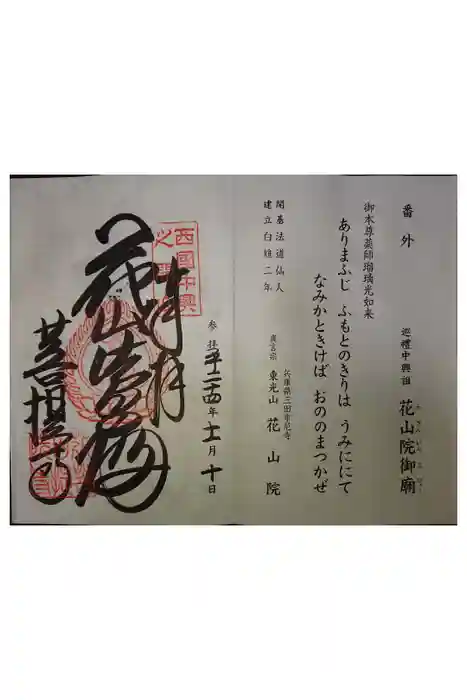 番外
巡禮中興祖 花山院御廟
御本尊薬師瑠璃光如来
ありまふじ ふもとのきりは うみににて
なみかときけば おののまつかぜ
開基法道仙人
建立白雉二年
兵庫県三田市尼寺
真言宗 東光山 花山院
参拝 平二十四年十一月十日
西国中興
奉拝
花山法皇殿
菩提寺